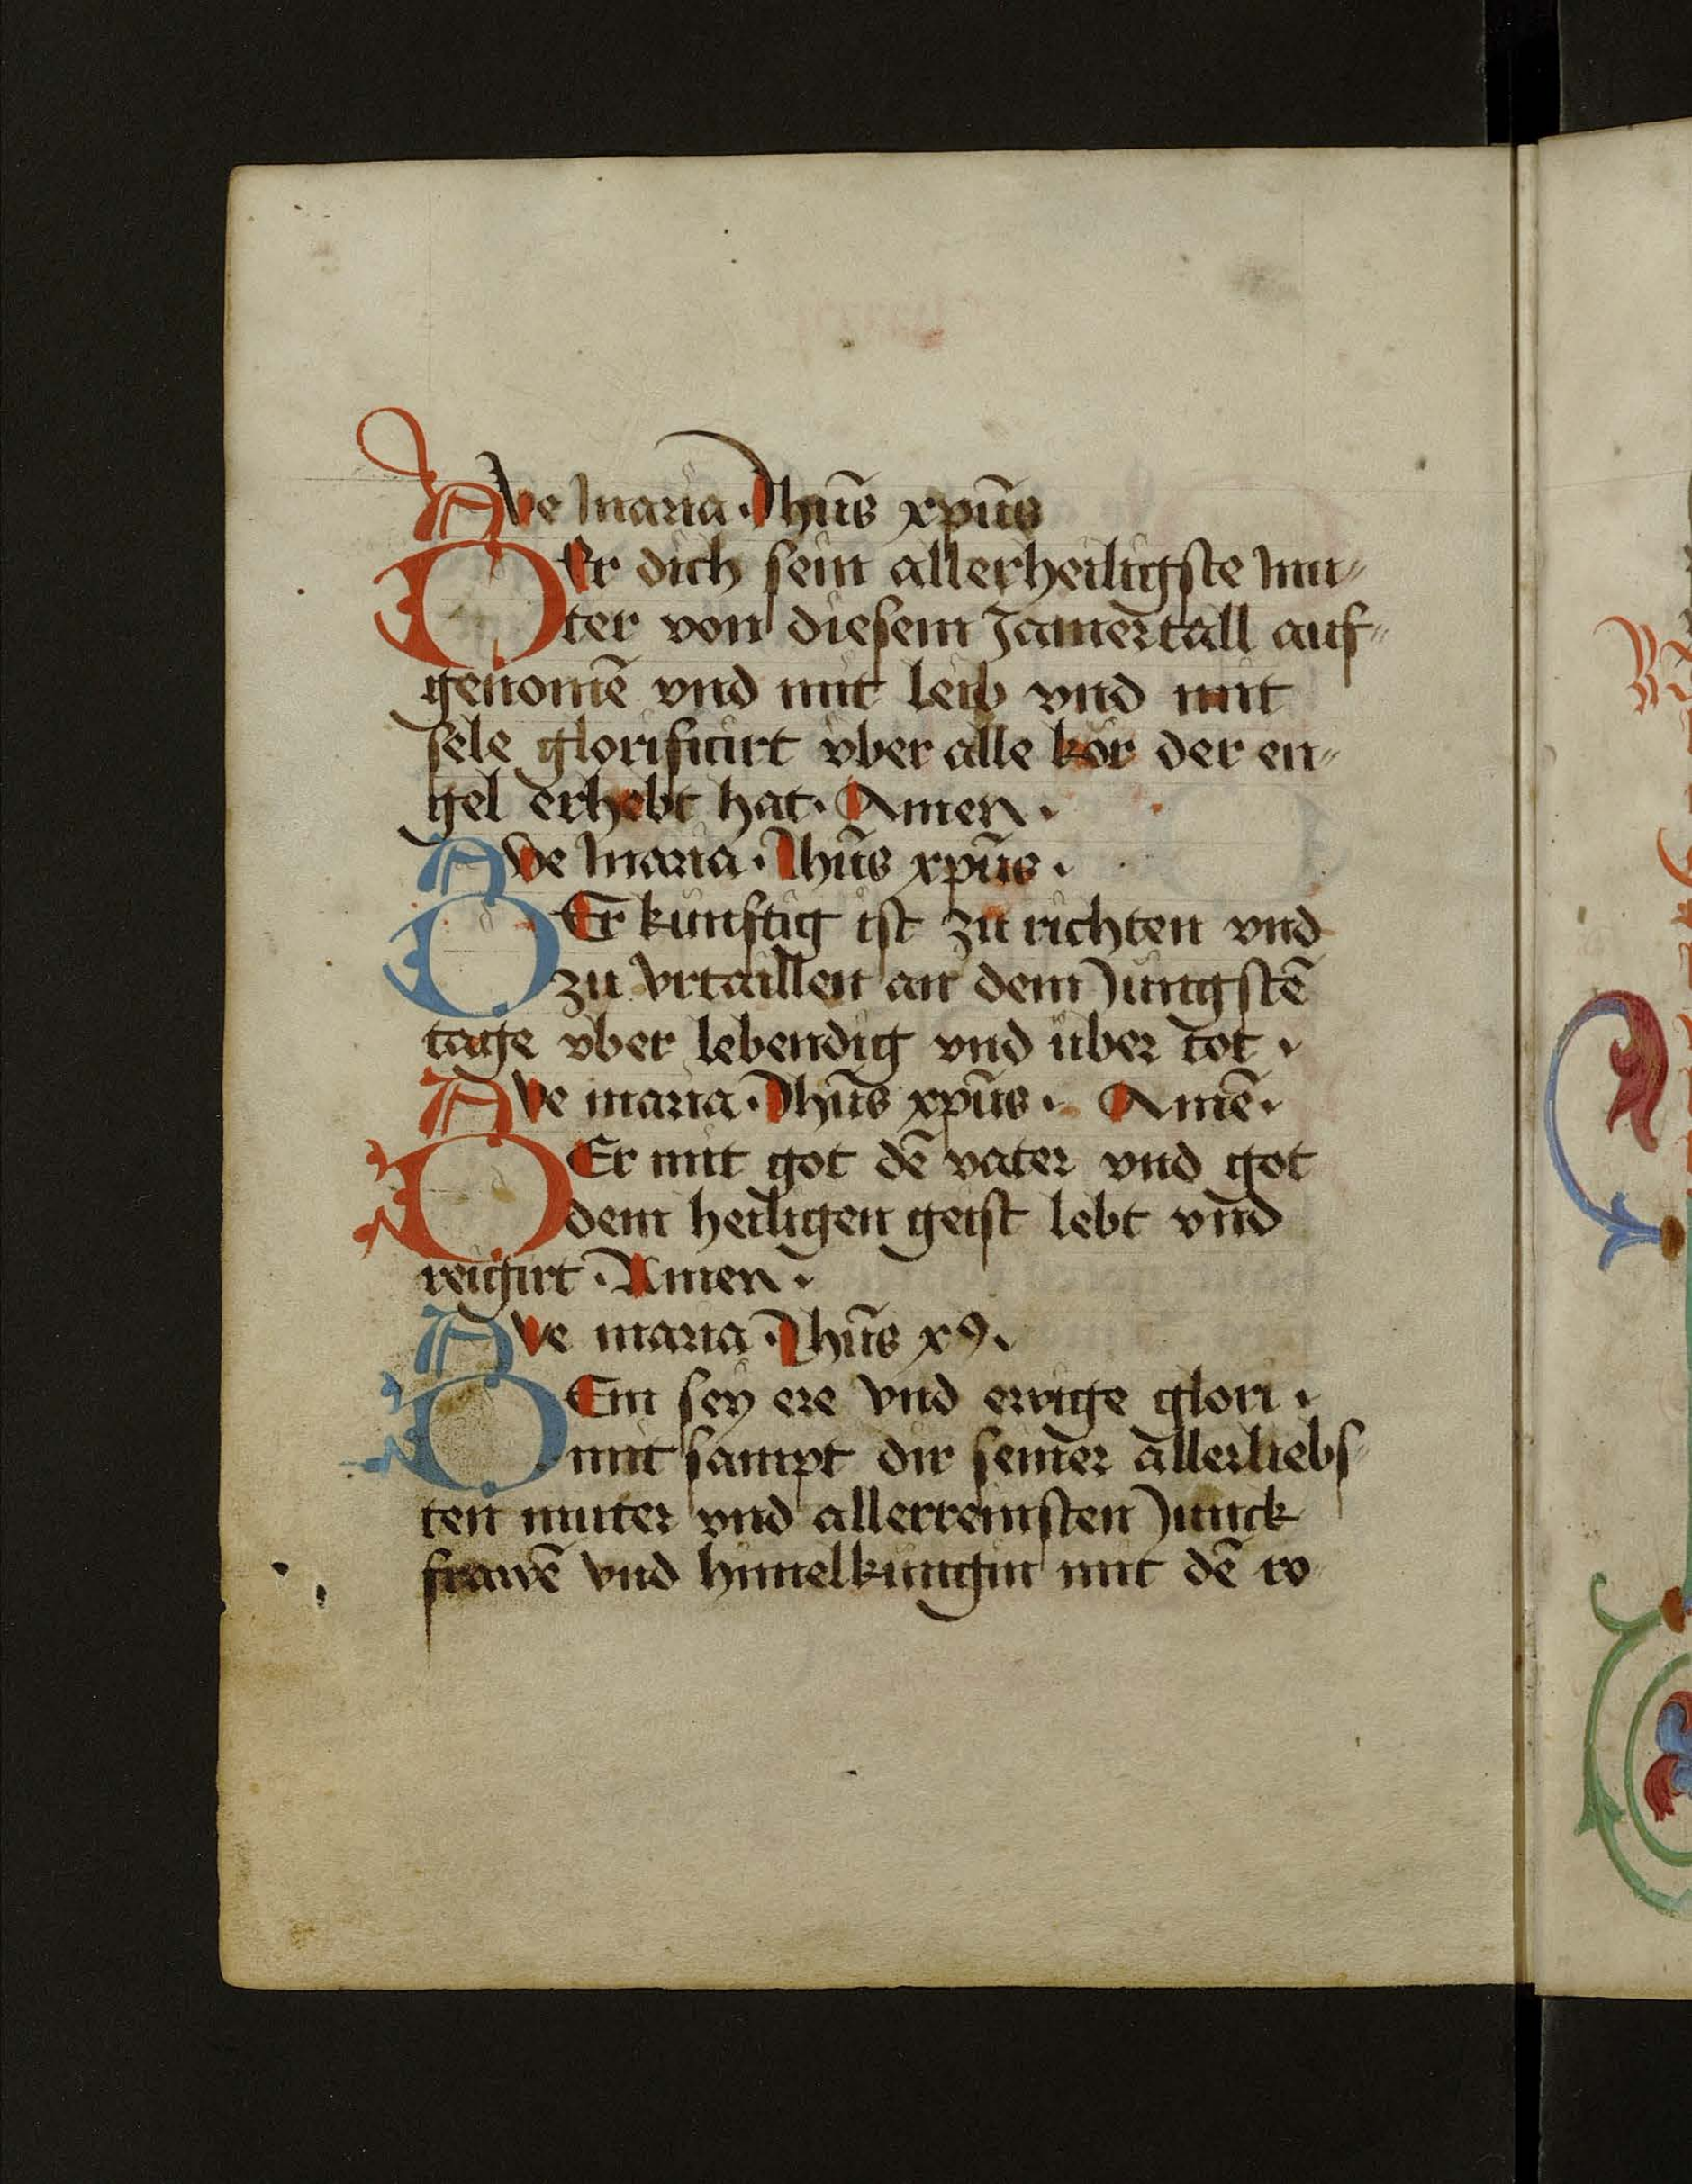 AVe maria · Jhūs xpūs
DEr dich sein allerheiligste mu-
ter von diesem Jamertall auf-
genomē vnd mit leib vnd mit
sele glorificirt vber alle kor der en-
gel erhebt hat · Amen ·
AVe maria · Jhūs xpūs ·
DEr kunftig ist zu richten vnd
zu vrtaillen an dem Jungstē
tage vber lebendig vnd uber tot ·
AVe maria · Jhūs xpūs · Amē ·
DEr mit got dē vater vnd got
dem heiligen geist lebt vnd
reigirt · Amen ·
AVe maria · Jhūs x9 ·
DEm sey ere vnd ewige glori ·
mit sampt dir seiner allerliebs-
ten muter vnd allerreinsten Junck
frawē vnd himelkungin mit dē ro